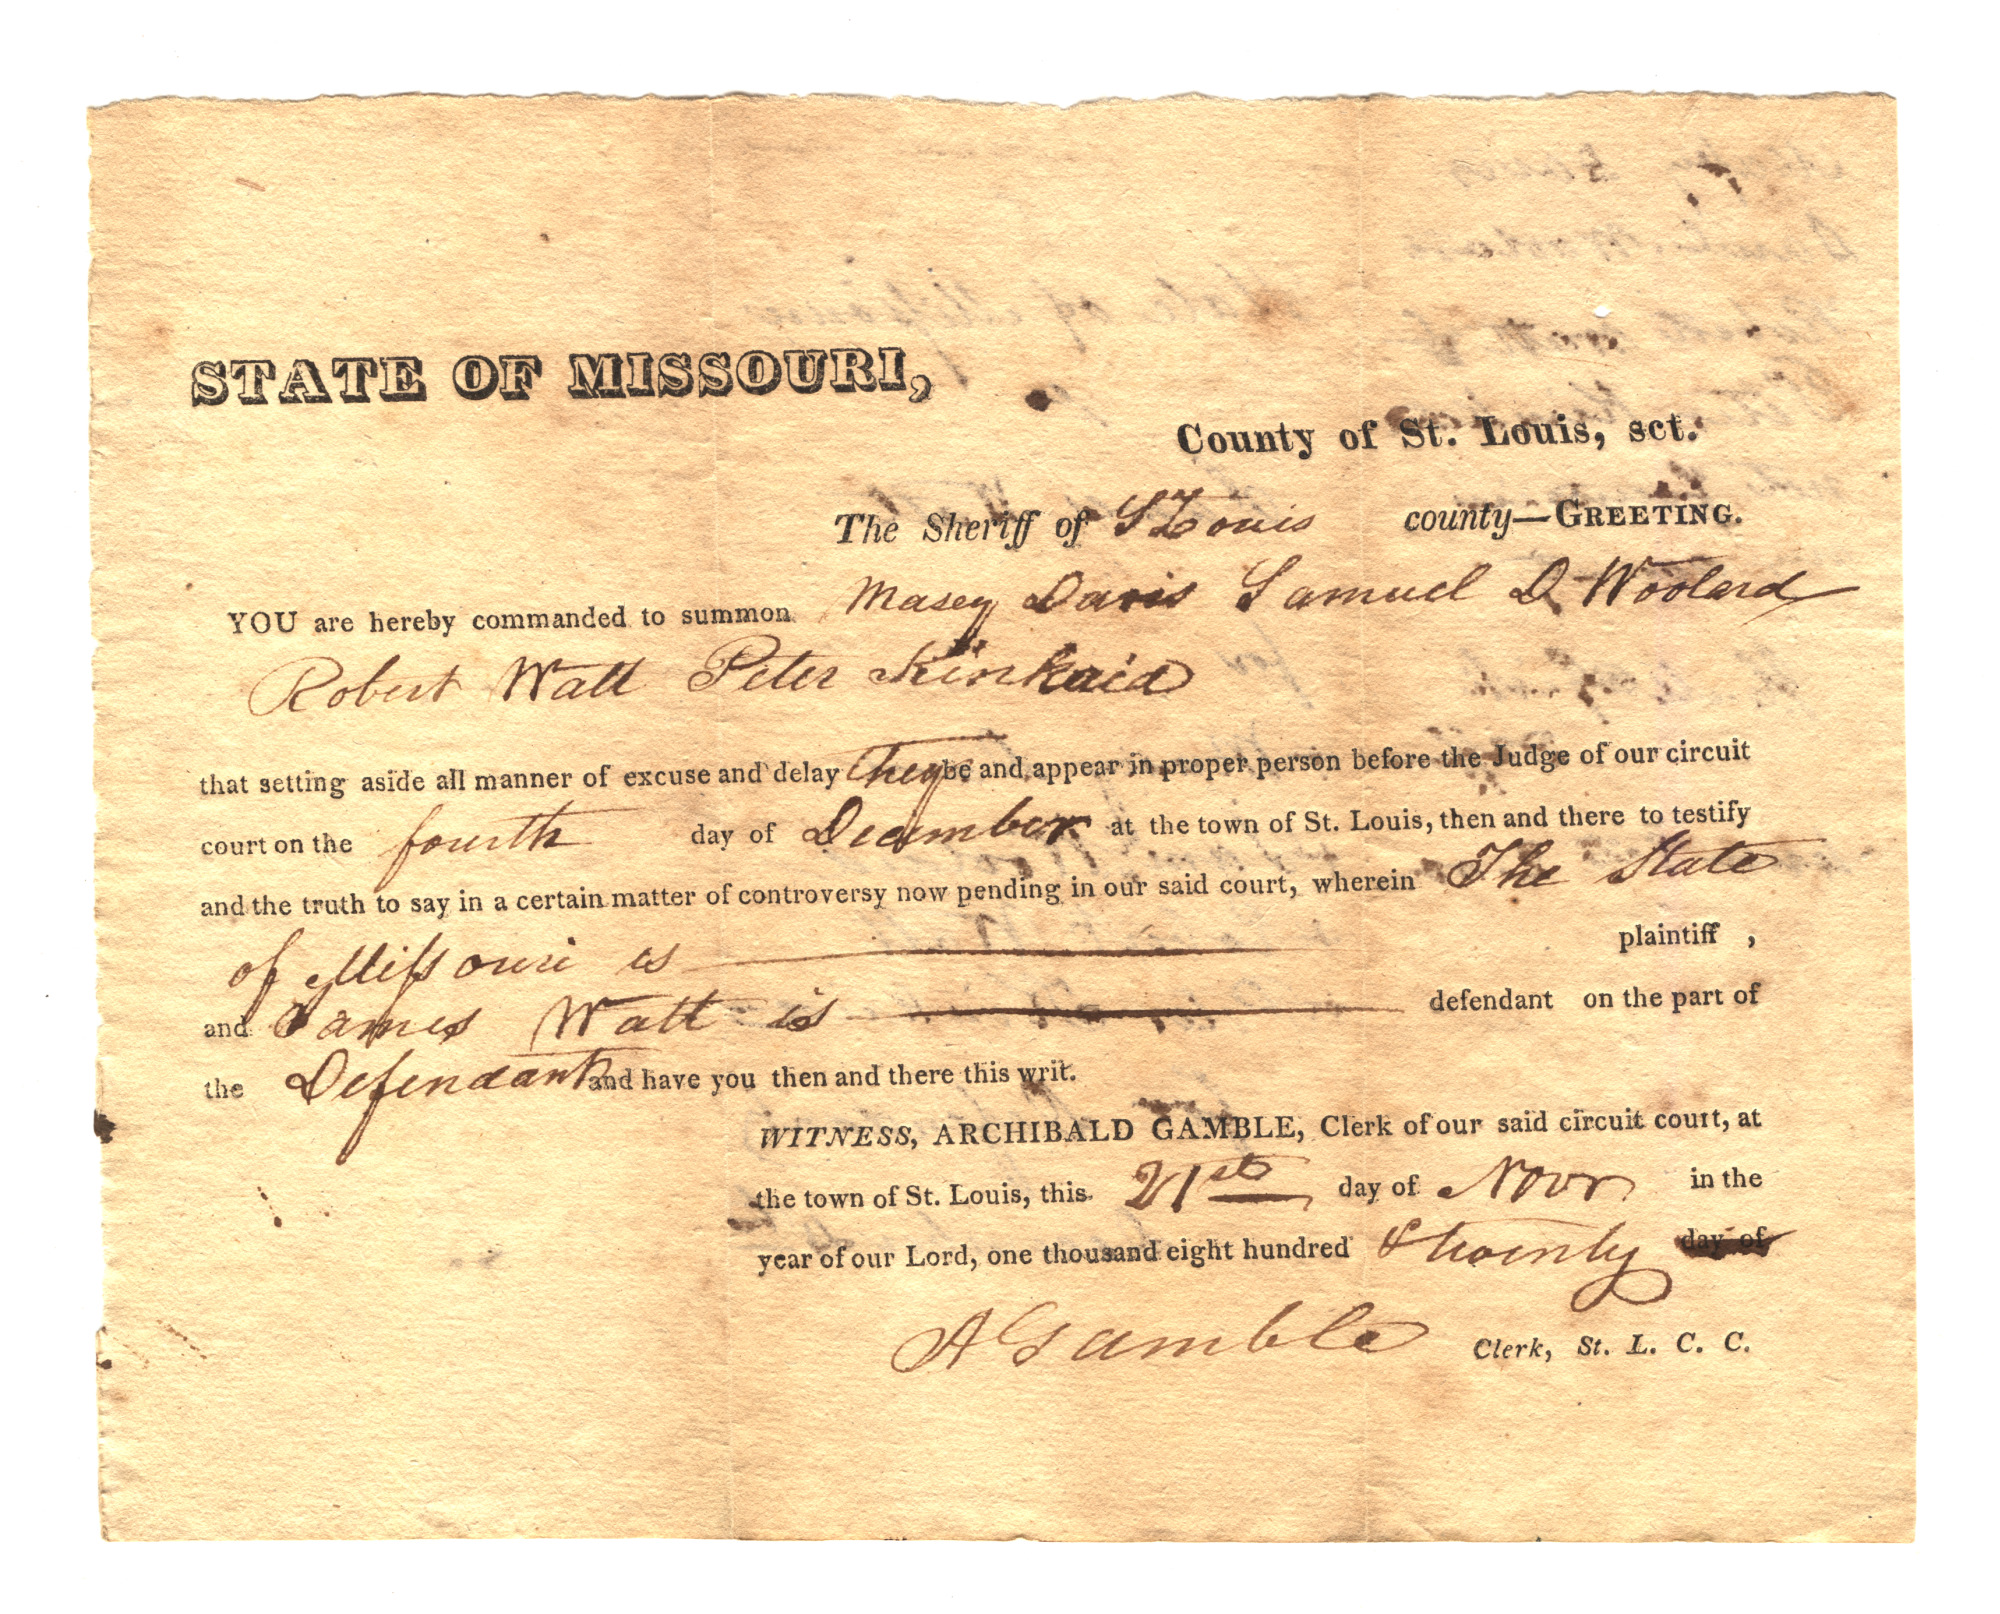 STATE OF MISSOURI,
County of St. Louis, sct.
The Sheriff of St Louis county—GREETING.
YOU are hereby commanded to summon Masey Davis Samuel D Woolard
Robert Watt Peter Kinkaid
that setting aside all manner of excuse and delay They be and appear in proper person before the Judge of our circuit
court on the fourth day of December at the town of St. Louis, then and there to testify
and the truth to say in a certain matter of controversy now pending in our said court, wherein The State
of Missouri is plaintiff ,
and James Watt is defendant on the part of
the Defendant and have you then and there this writ.
WITNESS, ARCHIBALD GAMBLE, Clerk of our said circuit court, at
the town of St. Louis, this 21st day of Novr in the
year of our Lord, one thousand eight hundred & twenty day of
A Gamble Clerk, St. L. C. C.